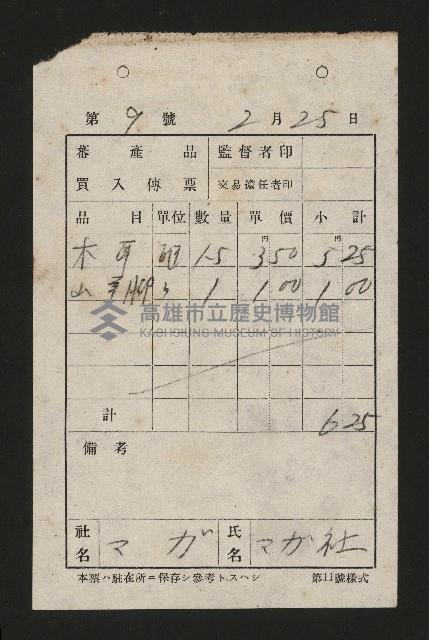 第 9 號 2 月 25 日
蕃產品 監督者印
買入傳票 交易擔任者印
品目 單位 數量 單價 小計
円 円
木耳 1.5 3 50 5 25
山 〃 1 1 00 1 00
高雄市立歷史博物館
KAOHSIUNG MUSEUM OF HISTORY
計 6 25
備考
社名 マガ 氏名 マガ社
本票ハ駐在所ニ保存シ參考トスヘシ 第11號樣式